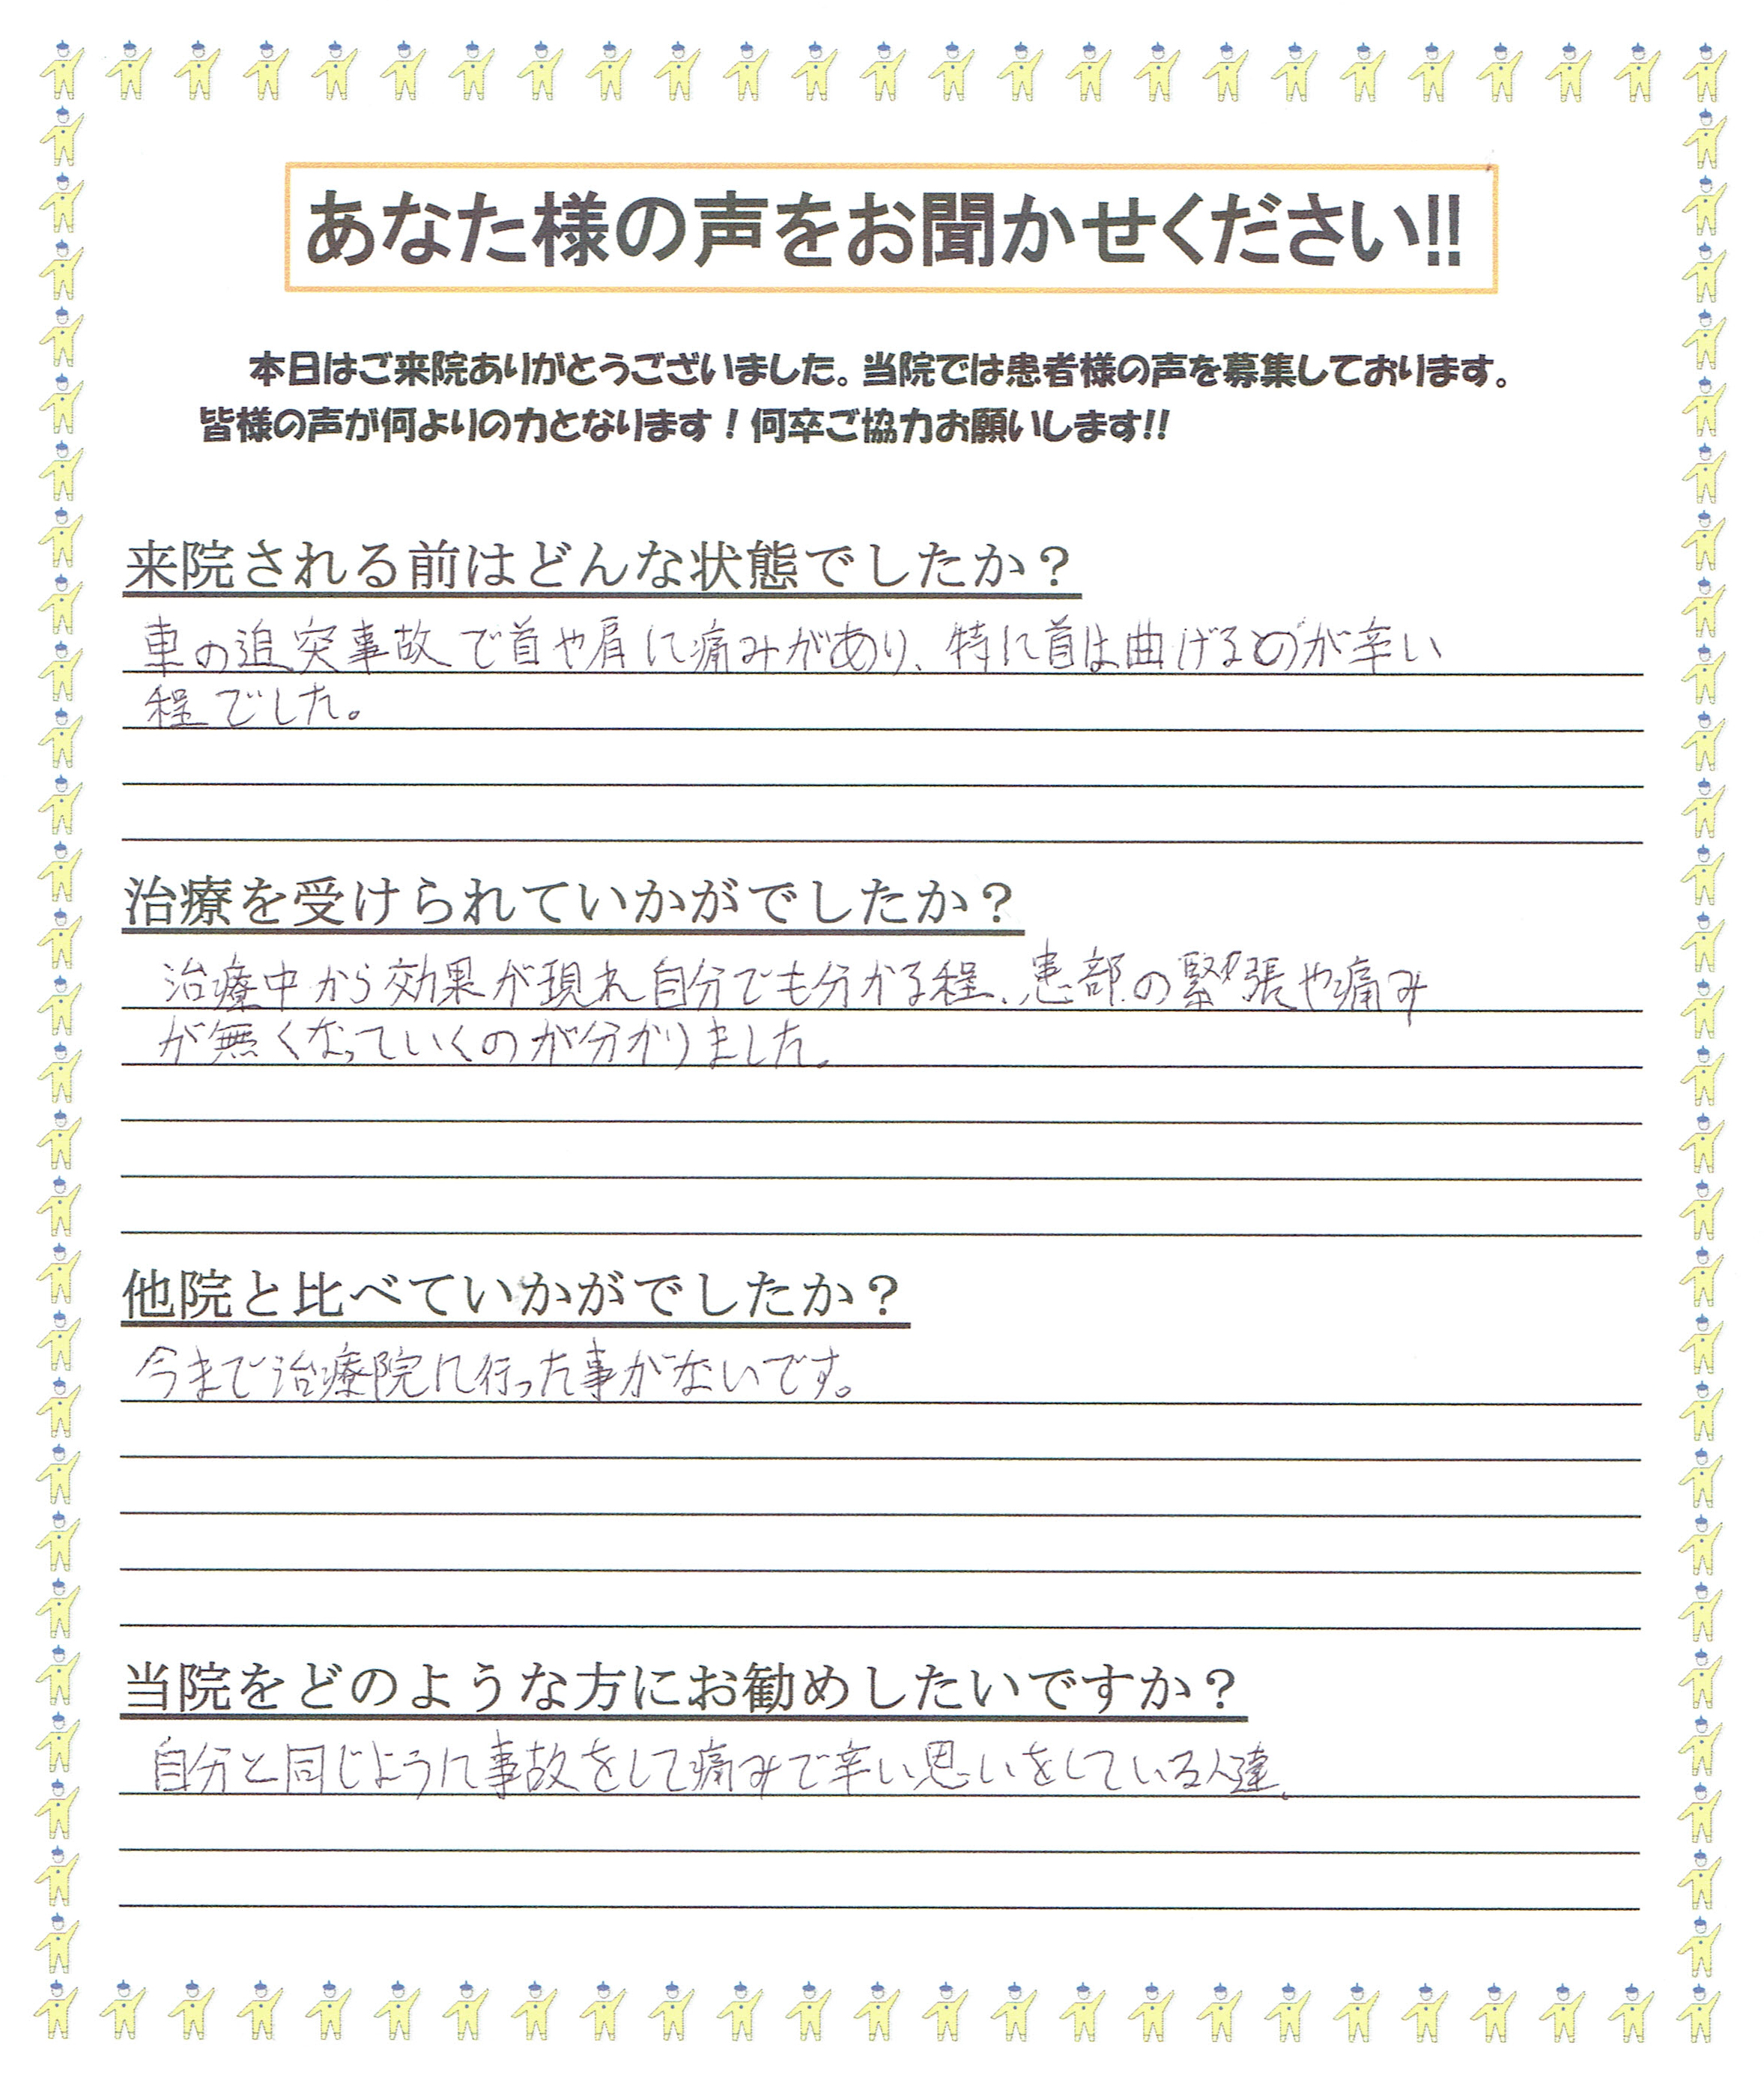 あなた様の声をお聞かせください!!
本日はご来院ありがとうございました。当院では患者様の声を募集しております。
皆様の声が何よりの力となります！何卒ご協力お願いします!!
来院される前はどんな状態でしたか？
車の追突事故で首や肩に痛みがあり、特に首は曲げるのが辛い
程でした。
治療を受けられていかがでしたか？
治療中から効果が現れ自分でも分かる程、患部の緊張や痛み
が無くなっていくのが分かりました。
他院と比べていかがでしたか？
今まで治療院に行った事がないです。
当院をどのような方にお勧めしたいですか？
自分と同じように事故をして痛みで辛い思いをしている人達、